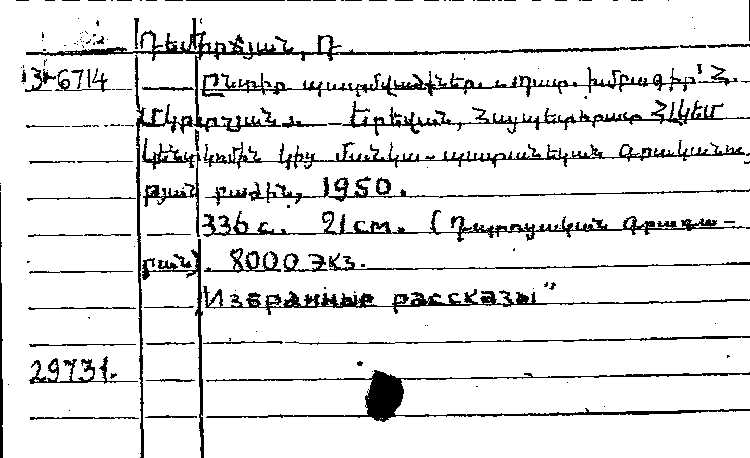 Դեմիրճյան, Դ.
3-6714 Ընտիր պատմվածքներ. Պատ. խմբագիր՝ Հ.
Մկրտչյան. — Երևան, Հայպետհրատ ՀԼԿԵՄ
կենտկոմին կից մանկա-պատանեկան գրականու
թյան բաժին, 1950.
336 с. 21 см. (Դպրոցական գրադա-
րան). 8000 экз.
Избранные рассказы"
29731.